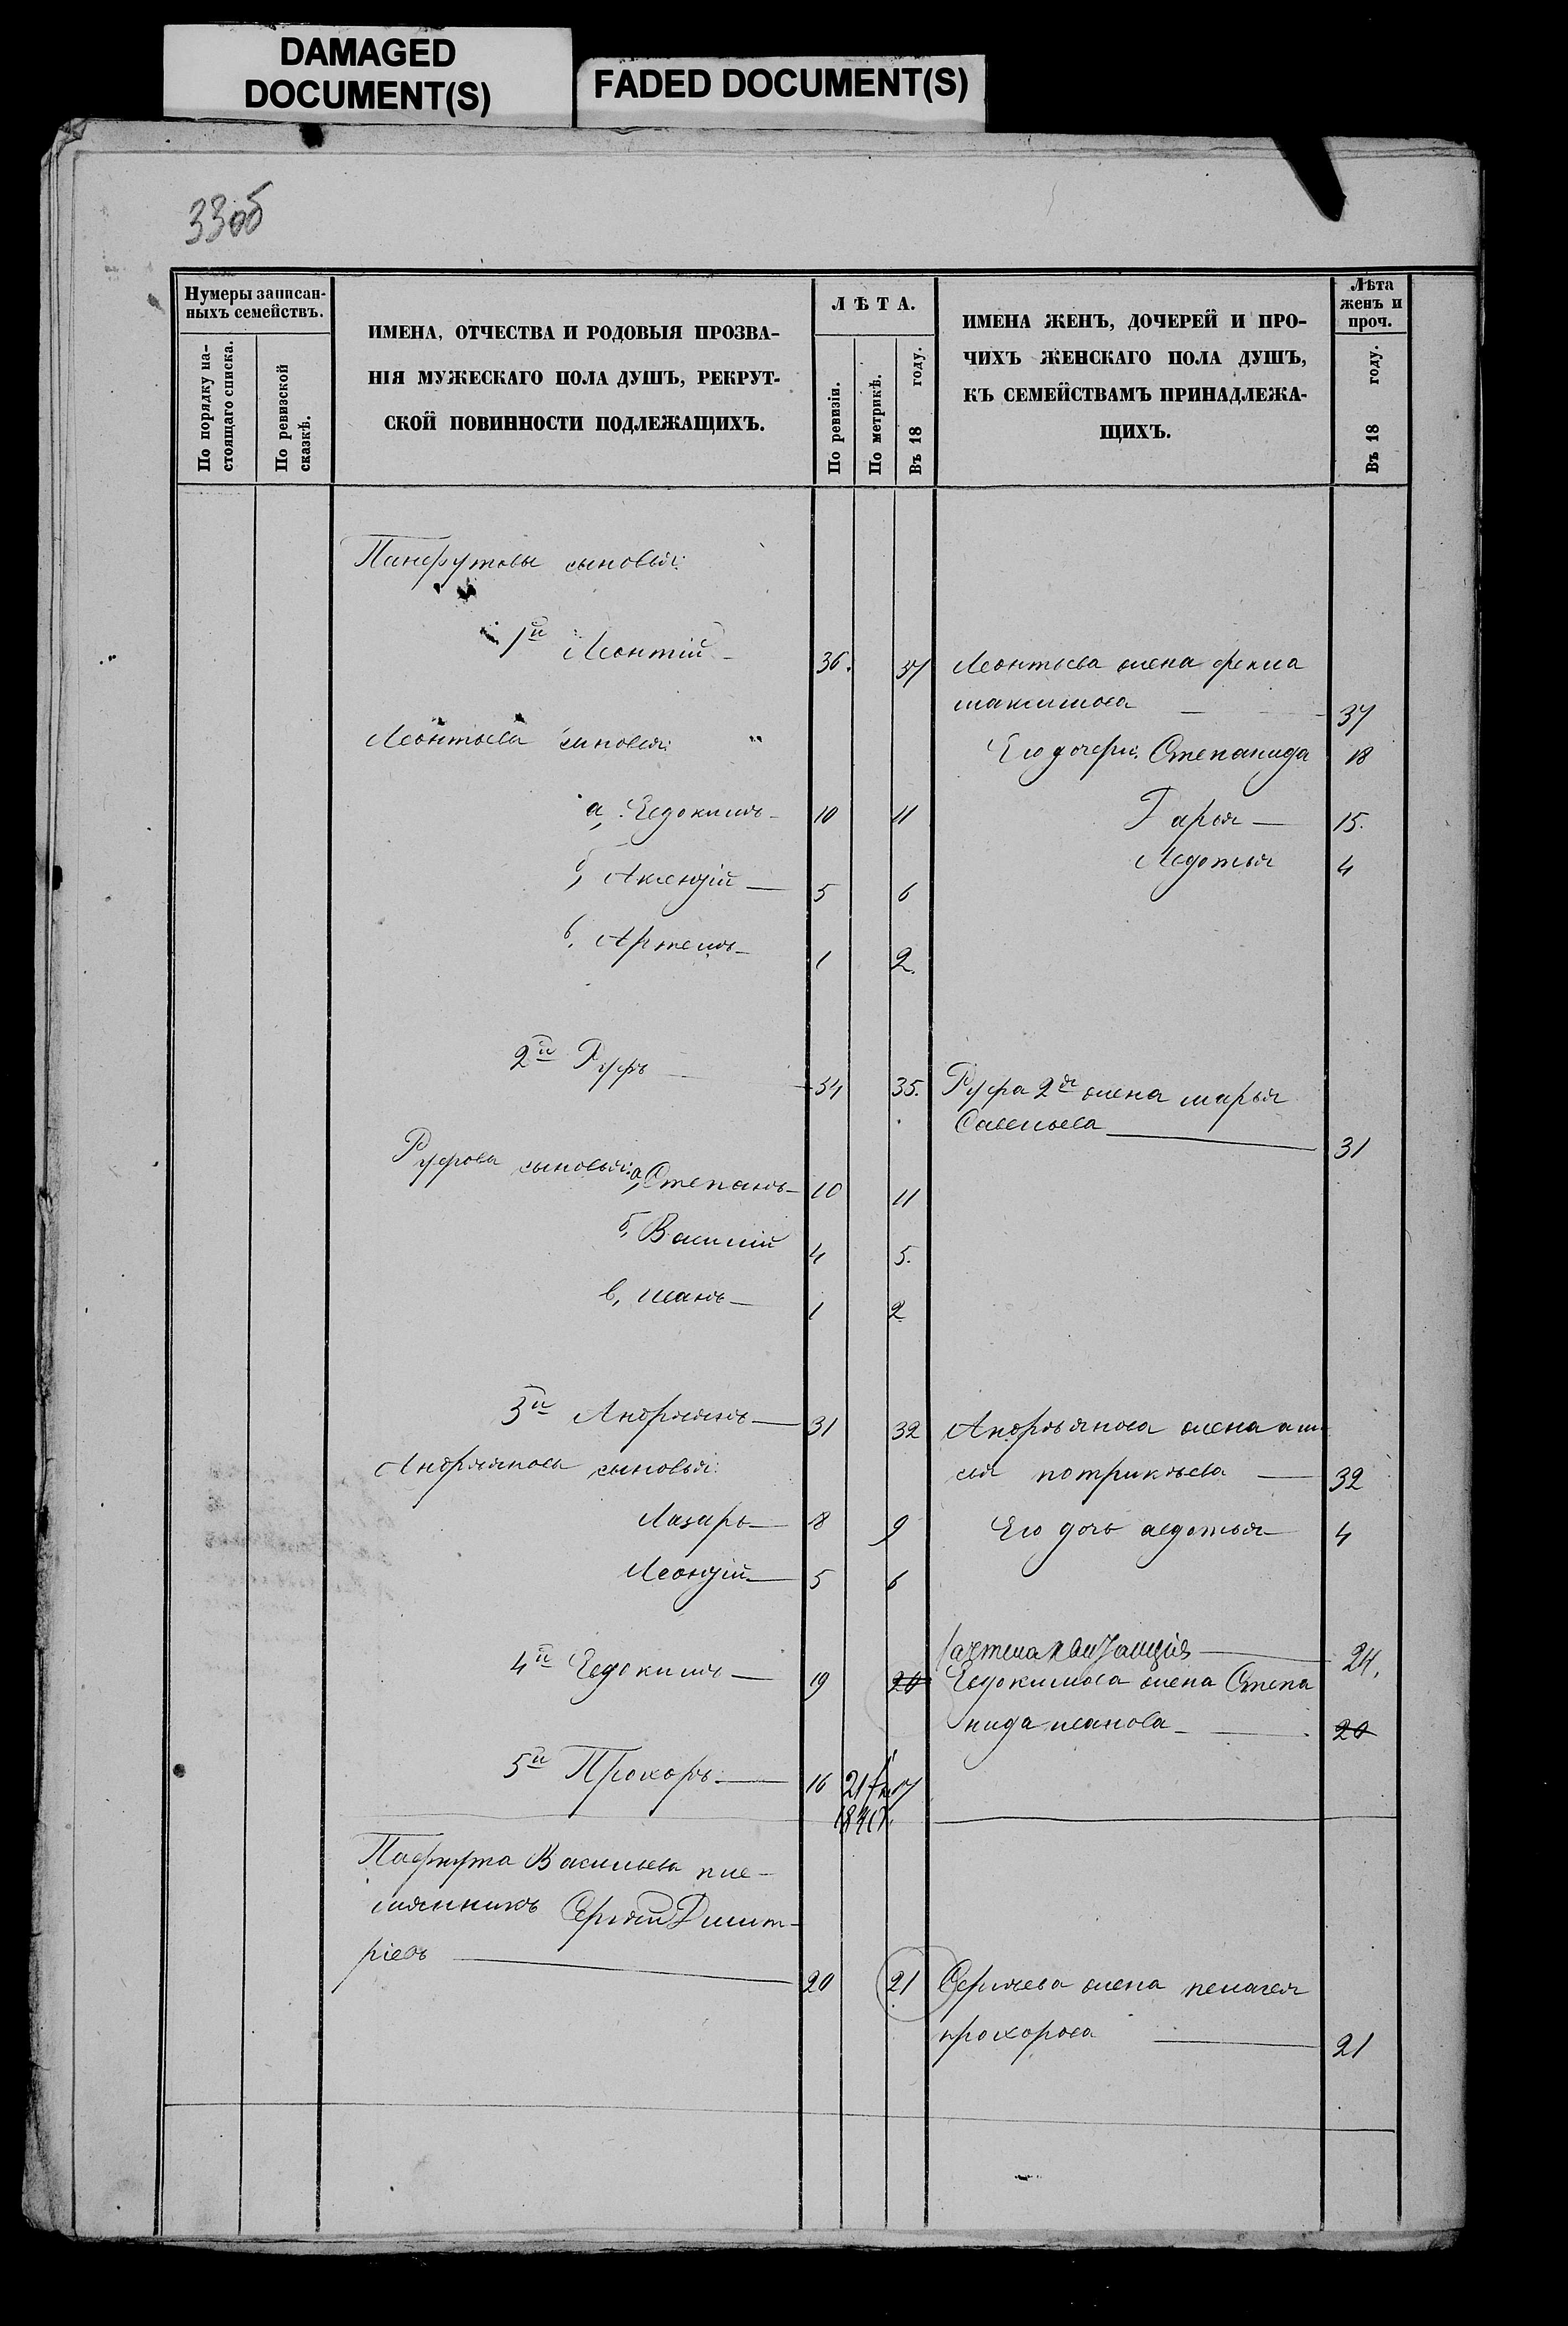 DAMAGED
DOCUMENT(S)
FADED DOCUMENT(S)
33об
Нумеры записан-
ныхъ семействъ.
По порядку на-
стоящаго списка.
По ревизской
сказкѣ.
ИМЕНА, ОТЧЕСТВА И РОДОВЫЯ ПРОЗВА-
НІЯ МУЖЕСКАГО ПОЛА ДУШЪ, РЕКРУТ-
СКОЙ ПОВИННОСТИ ПОДЛЕЖАЩИХЪ.
ЛѢТА.
По ревизіи.
По метрикѣ.
Въ 18 году.
ИМЕНА ЖЕНЪ, ДОЧЕРЕЙ И ПРО-
ЧИХЪ ЖЕНСКАГО ПОЛА ДУШЪ,
КЪ СЕМЕЙСТВАМЪ ПРИНАДЛЕЖА-
ЩИХЪ.
Лѣта
женъ и
проч.
Въ 18 году.
Панфутовы сыновья:
1й Леонтій 36. 37 Леонтьева жена фекла
максимова 37
Леонтьевы сыновья: Его дочери: Степанида 18
а, Евдокимъ 10 11 Дарья 15.
б, Авксентій 5 6 Авдотья 4
в, Артемъ 1 2.
2й Руфъ 34 35. Руфа 2я жена марья
Савельева 31
Руфовы сыновья: а, Степанъ 10 11
б, Василій 4 5.
в, иванъ 1 2
3й Андріянъ 31 32 Андрьянова жена ани-
сья патрикѣева 32
Андріяновы сыновья:
Лазарь 8 9 Его дочь авдотья 4
Леонтій 5 6
24.
4й Евдокимъ 19 20 Евдокимова жена Степа
нида иванова 20
5й Прохоръ 16 21 17
184
Пафнута Васильева пле-
мянникъ Сергѣй Дмит-
ріевъ 20 21 Сергѣева жена пелагея
прохорова 21